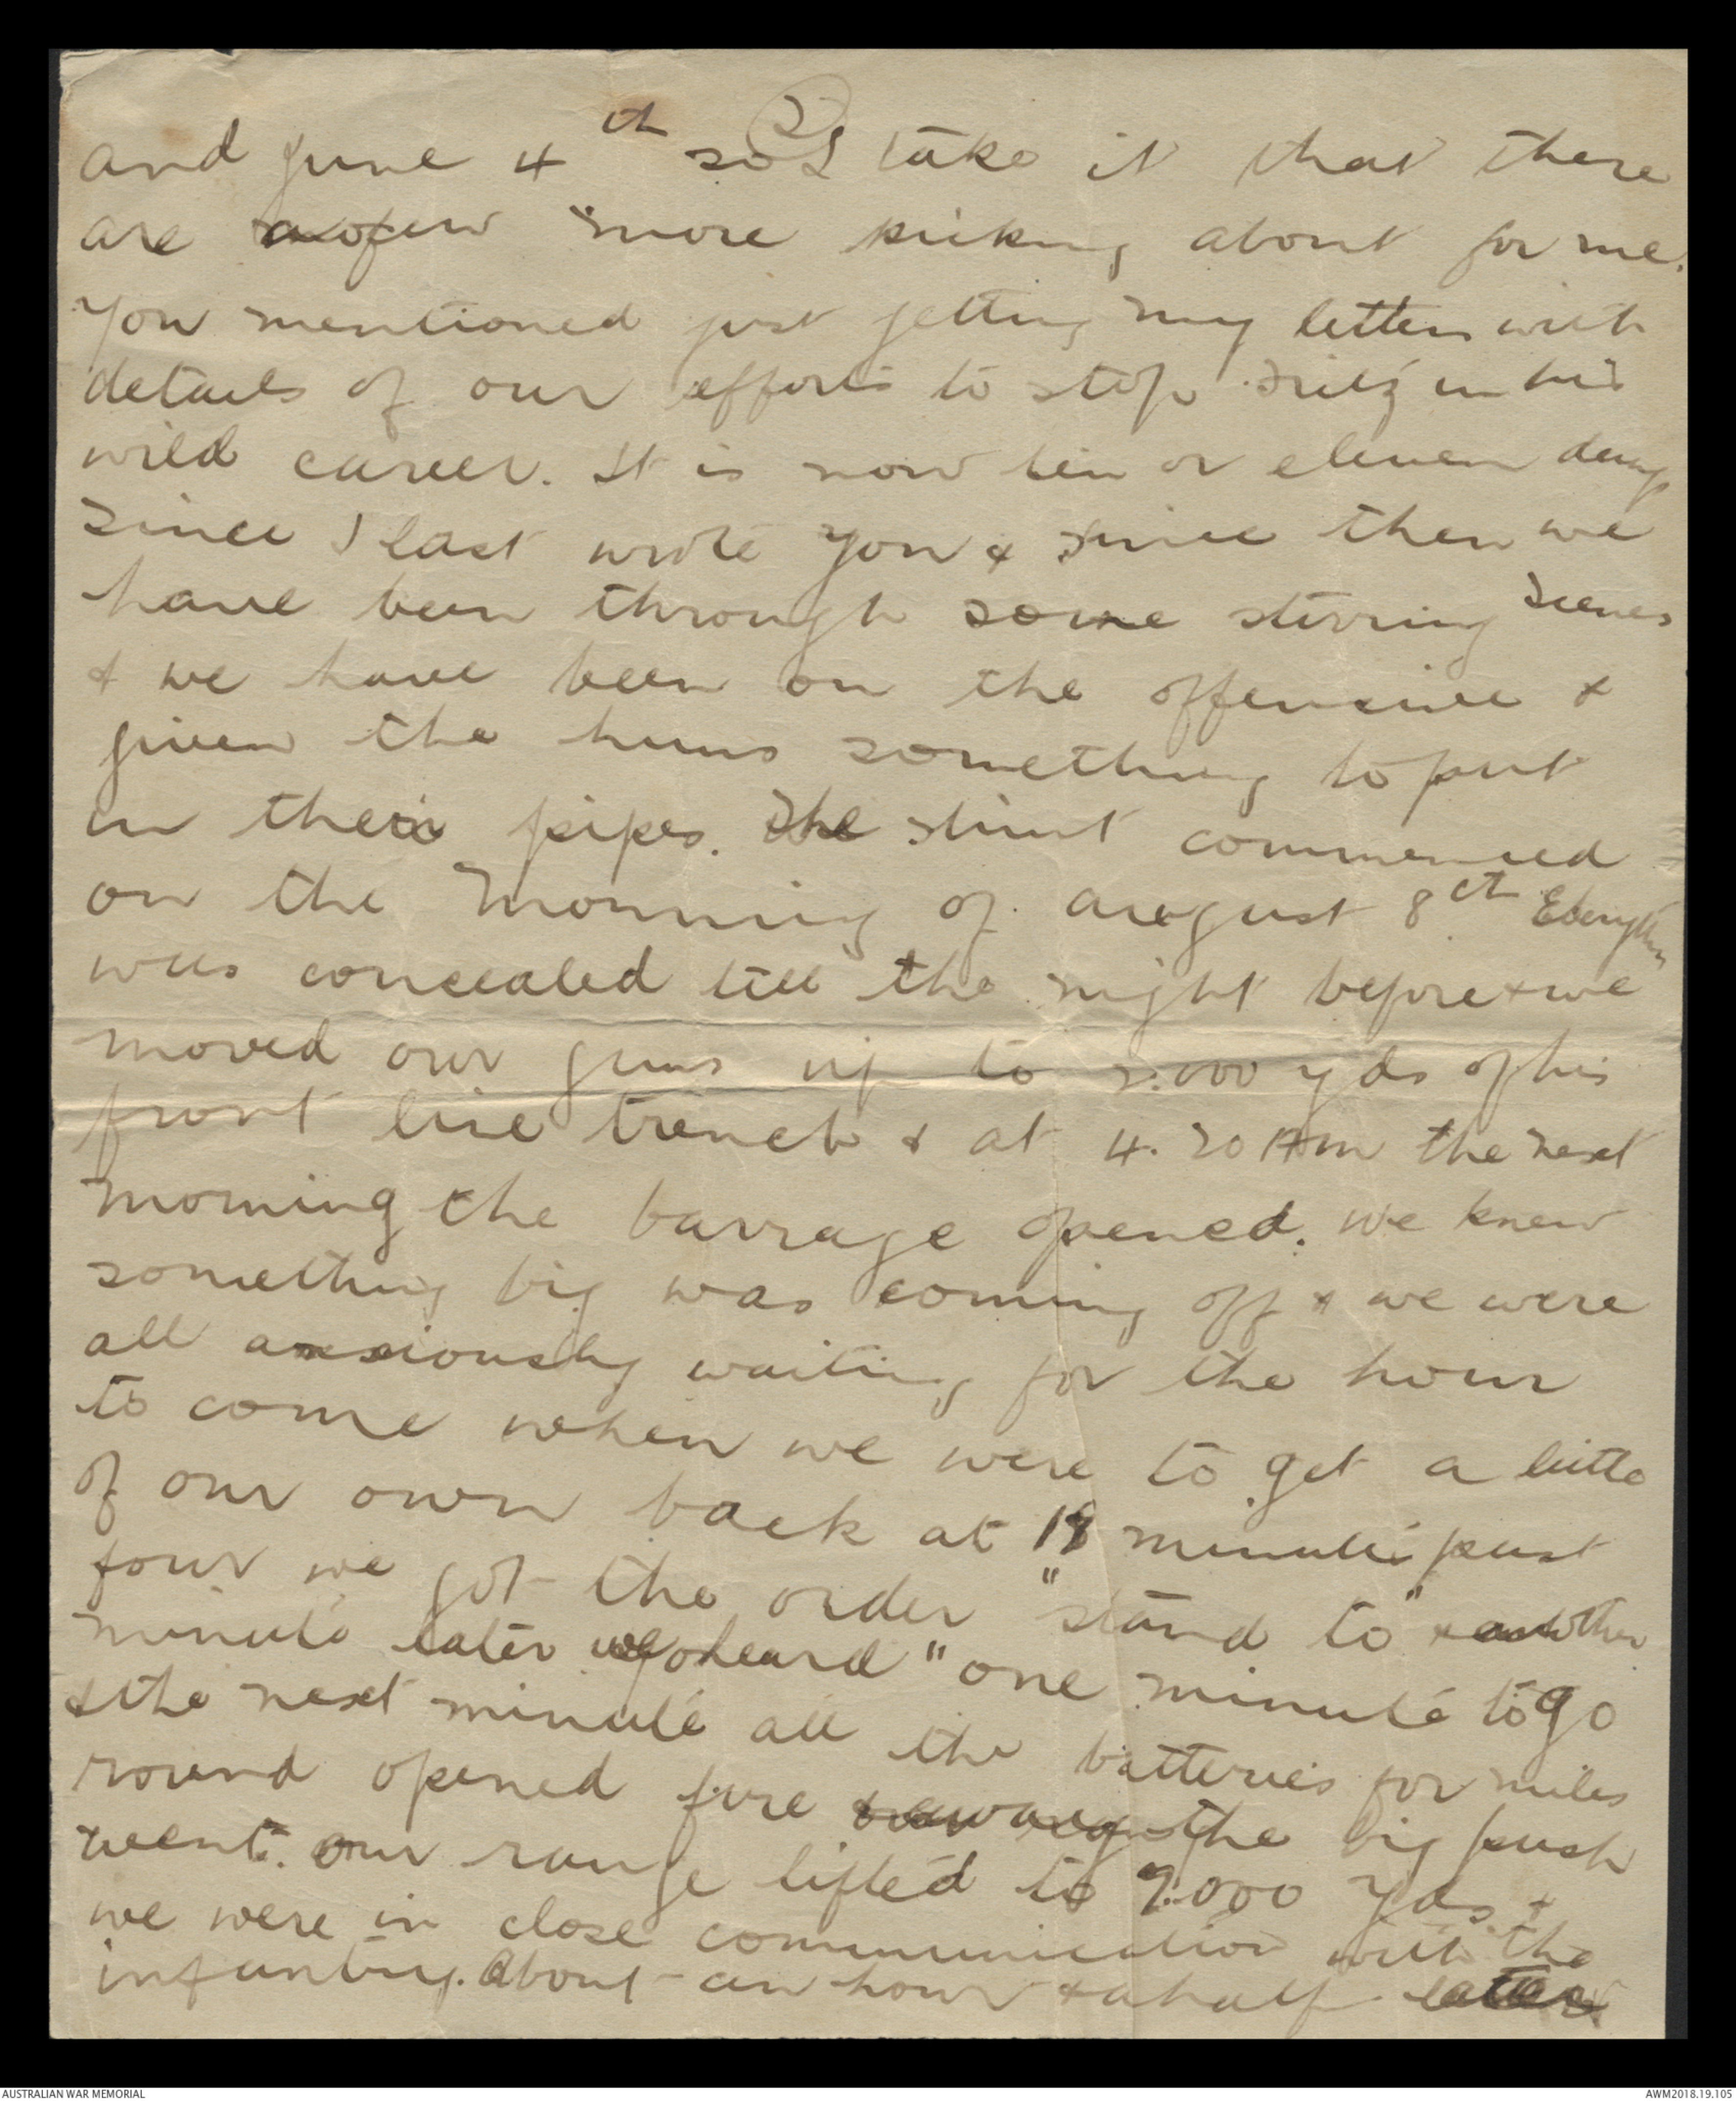 2
and June 4th so I take it that there
are a few more kicking about for me.
You mentioned just getting my letters with
details of our efforts to stop Fritz in his
wild career. It is now ten or eleven days
since I last wrote you & since then we
have been through some stirring scenes
& we have been on the offensive &
given the huns something to put
in their pipes. The stunt commenced
on the morning of august 8th Everything
was concealed till the night before & we
moved our guns up to 2.000 yds of his
front line trench & at 4.20 AM the next
morning the barrage opened. we knew
something big was coming off & we were
all anxiously waiting for the hour
to come when we were to get a little
of our own back at 18 minutes past
four we got the order "stand to" & another
minute later we heard "one minute to go
& the next minute all the batteries for miles
round opened fire & away the big push
went. our range lifted to 7.000 yds &
we were in close communication with the
infantry. About an hour & a half later
AUSTRALIAN WAR MEMORIAL
AWM2018.19.105